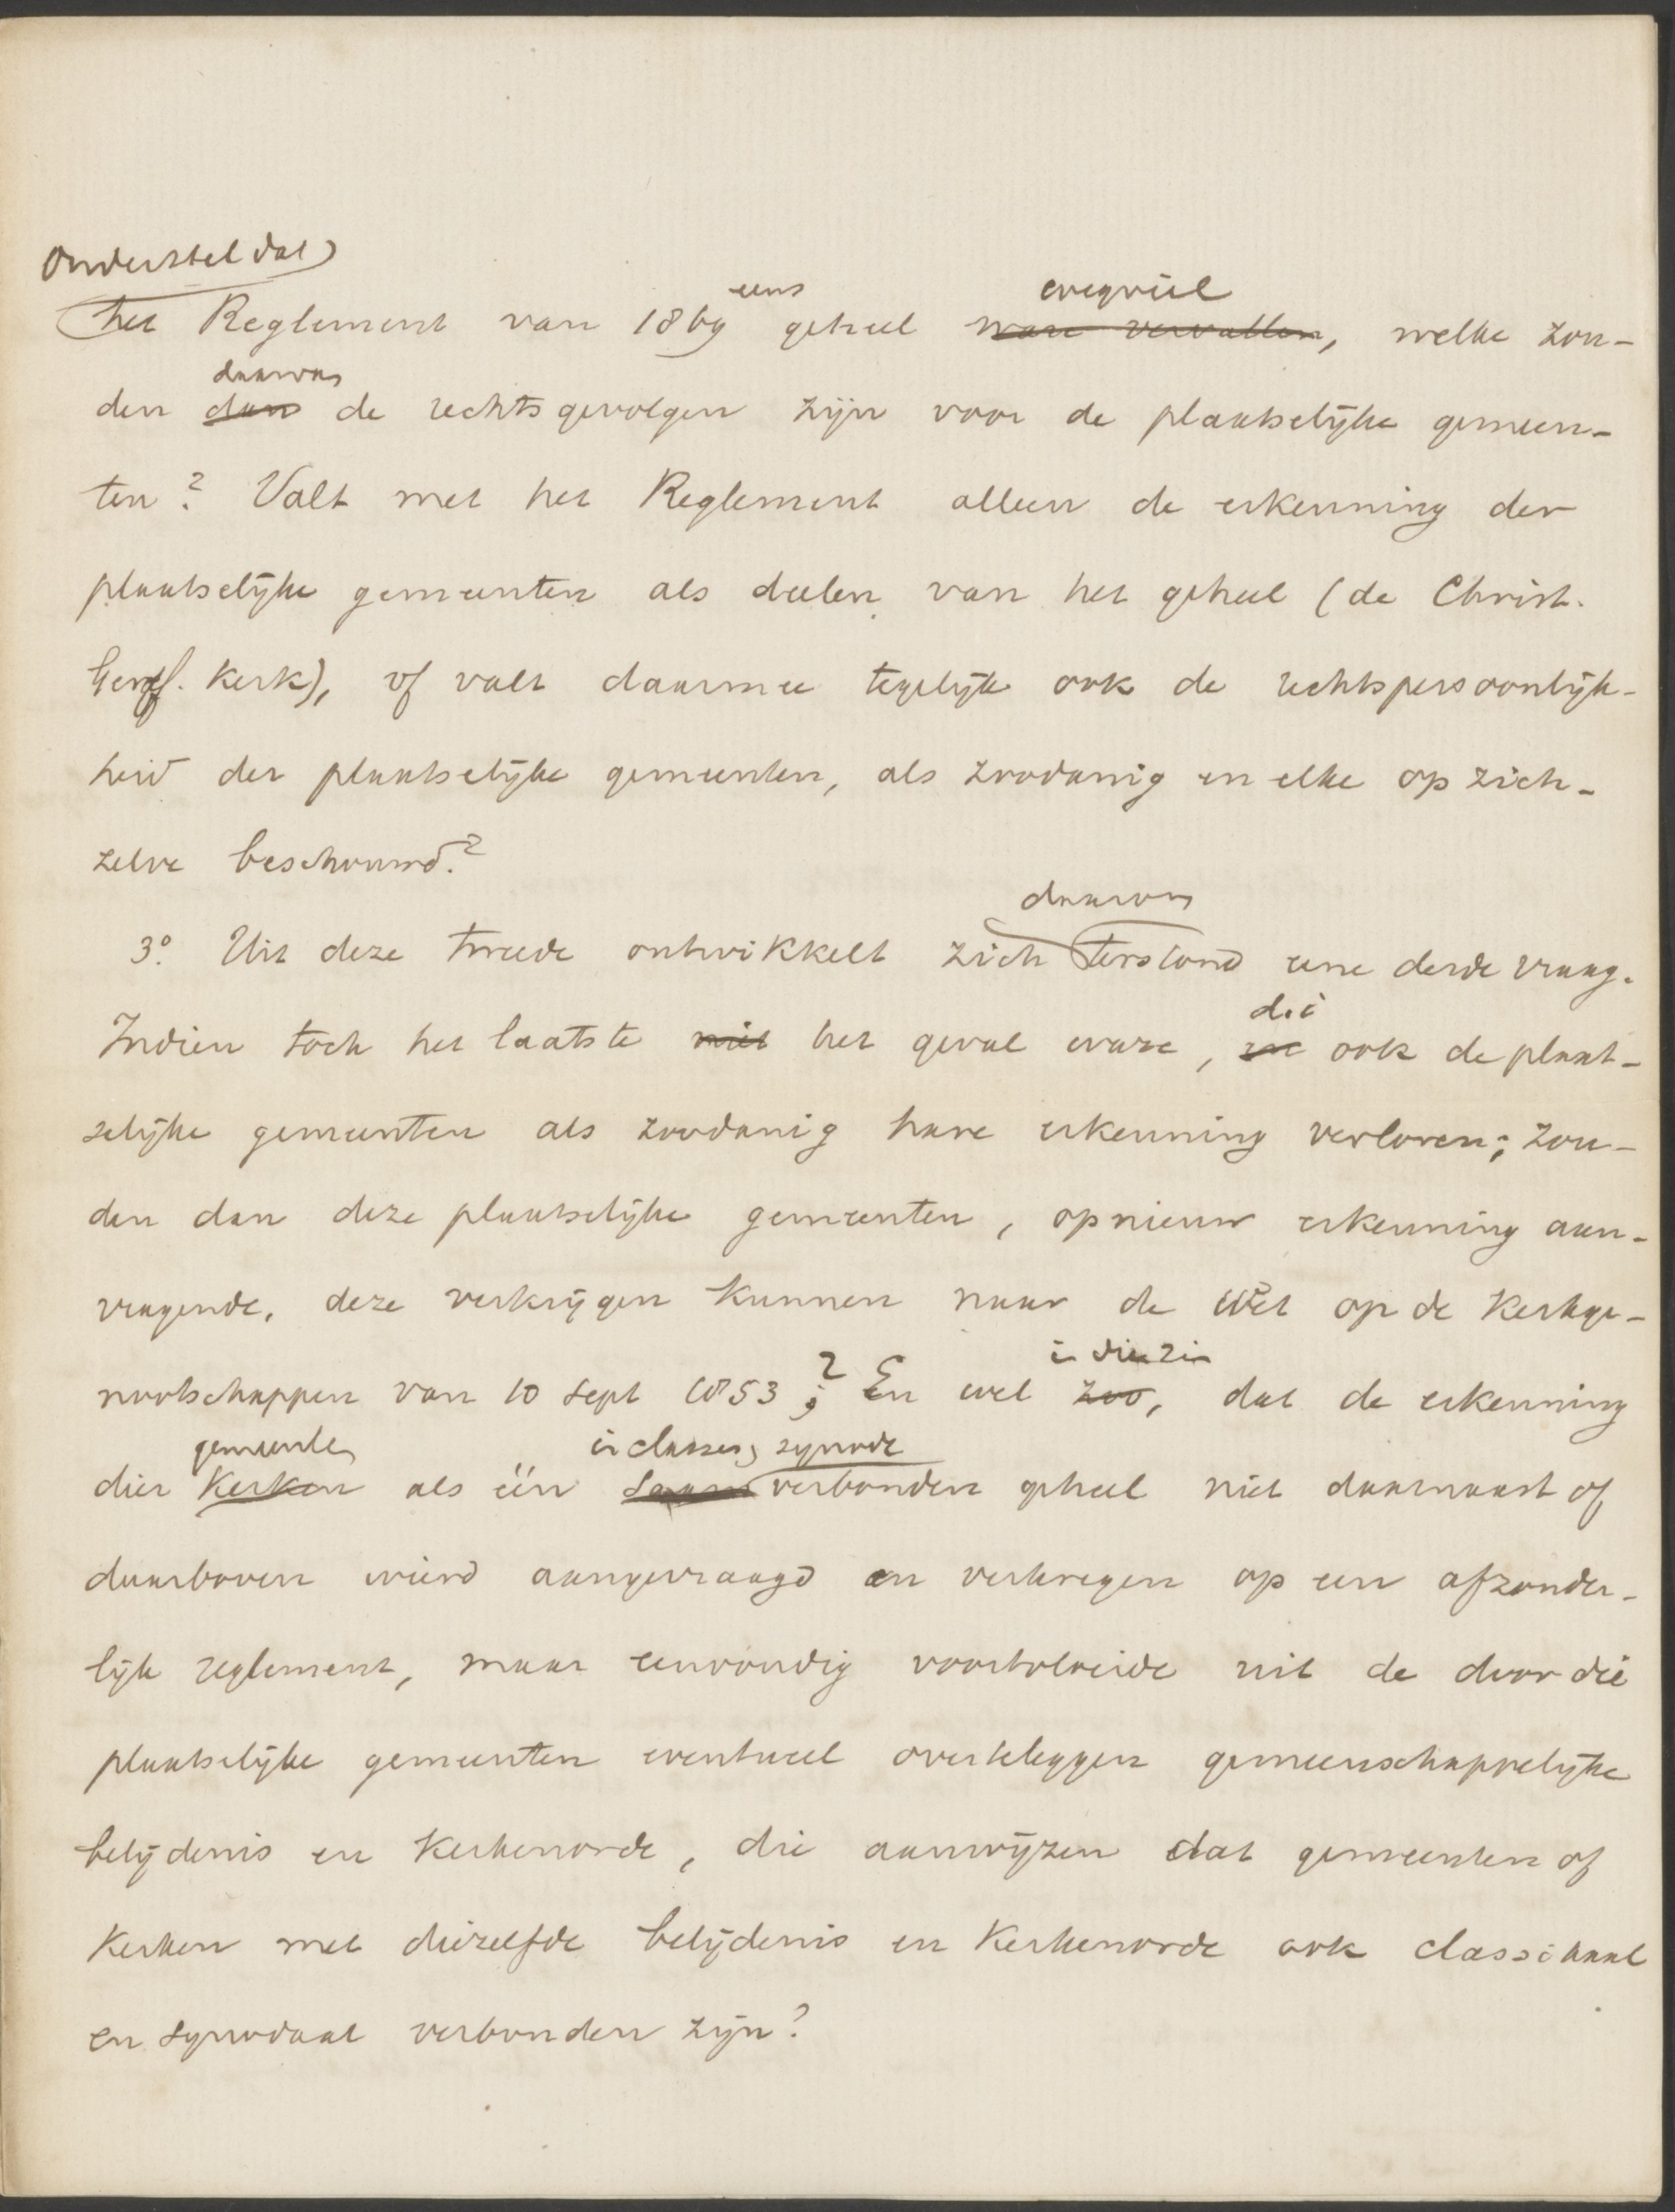 Onderstel dat
het Reglement van 1869 eens geheel ~~ware vervallen~~ wegviel, welke zou-
den ~~dan~~ daarvan de rechtsgevolgen zijn voor de plaatselijke gemeen-
ten? Valt met het Reglement alleen de erkenning der
plaatselijke gemeenten als deelen van het geheel (de Christ.
Geref. Kerk), of valt daarmee tegelijk ook de rechtspersoonlijk-
heid der plaatselijke gemeenten, als zoodanig en elke op zich-
zelve beschouwd?
3o. Uit deze tweede ontwikkelt zich daarom terstond eene derde vraag.
Indien toch het laatste ~~niet~~ het geval ware, die ook de plaat-
selijke gemeenten als zoodanig hare erkenning verloren; zou-
den dan deze plaatselijke gemeenten, opnieuw erkenning aan-
vragende, deze verkrijgen kunnen naar de Wet op de Kerkge-
nootschappen van 10 Sept 1853? En wel ~~zoo~~ in dien zin, dat de erkenning
dier ~~Kerken~~ gemeenten als één in classes, synode verbonden geheel niet daarnaast of
daarboven wierd aangevraagd en verkregen op een afzonder-
lijk reglement, maar eenvoudig voortvloeide uit de door die
plaatselijke gemeenten eventueel overteleggen gemeenschappelijke
belijdenis en Kerkenorde, die aanwijzen dat gemeenten of
Kerken met diezelfde belijdenis en Kerkenorde ook classikaal
en synodaal verbonden zijn?